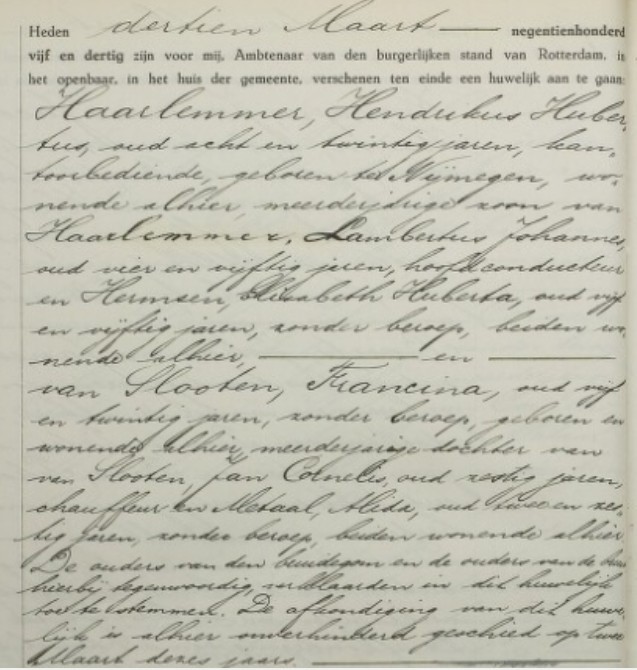 Heden dertien Maart — negentienhonderd
vijf en dertig zijn voor mij, Ambtenaar van den burgerlijken stand van Rotterdam, in
het openbaar, in het huis der gemeente, verschenen ten einde een huwelijk aan te gaan:
Haarlemmer, Hendrikus Huber-
tus, oud acht en twintig jaren, kan-
toorbediende, geboren te Nijmegen, wo-
nende alhier, meerderjarige zoon van
Haarlemmer, Lambertus Johannes,
oud vier en vijftig jaren, hoofdconducteur
en Hermsen, Elisabeth Huberta, oud vijf
en vijftig jaren, zonder beroep, beiden wo-
nende alhier, — en —
van Slooten, Francina, oud vijf
en twintig jaren, zonder beroep, geboren en
wonende alhier, meerderjarige dochter van
van Slooten, Jan Cornelis, oud zestig jaren,
chauffeur en Metaal, Alida, oud twee en zes-
tig jaren, zonder beroep, beiden wonende alhier
De ouders van den bruidegom en de ouders van de bruid
hierbij tegenwoordig, verklaarden in dit huwelijk
toe te stemmen. De afkondiging van dit huwe-
lijk is alhier onverhinderd geschied op twee
Maart dezes jaars. —